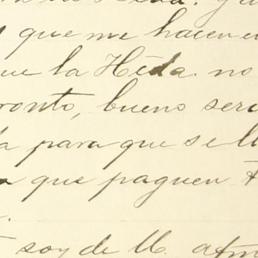 que me hacen
que la Hèda. no
pronto, bueno será
para que se l
que paguen
soy de U. atm